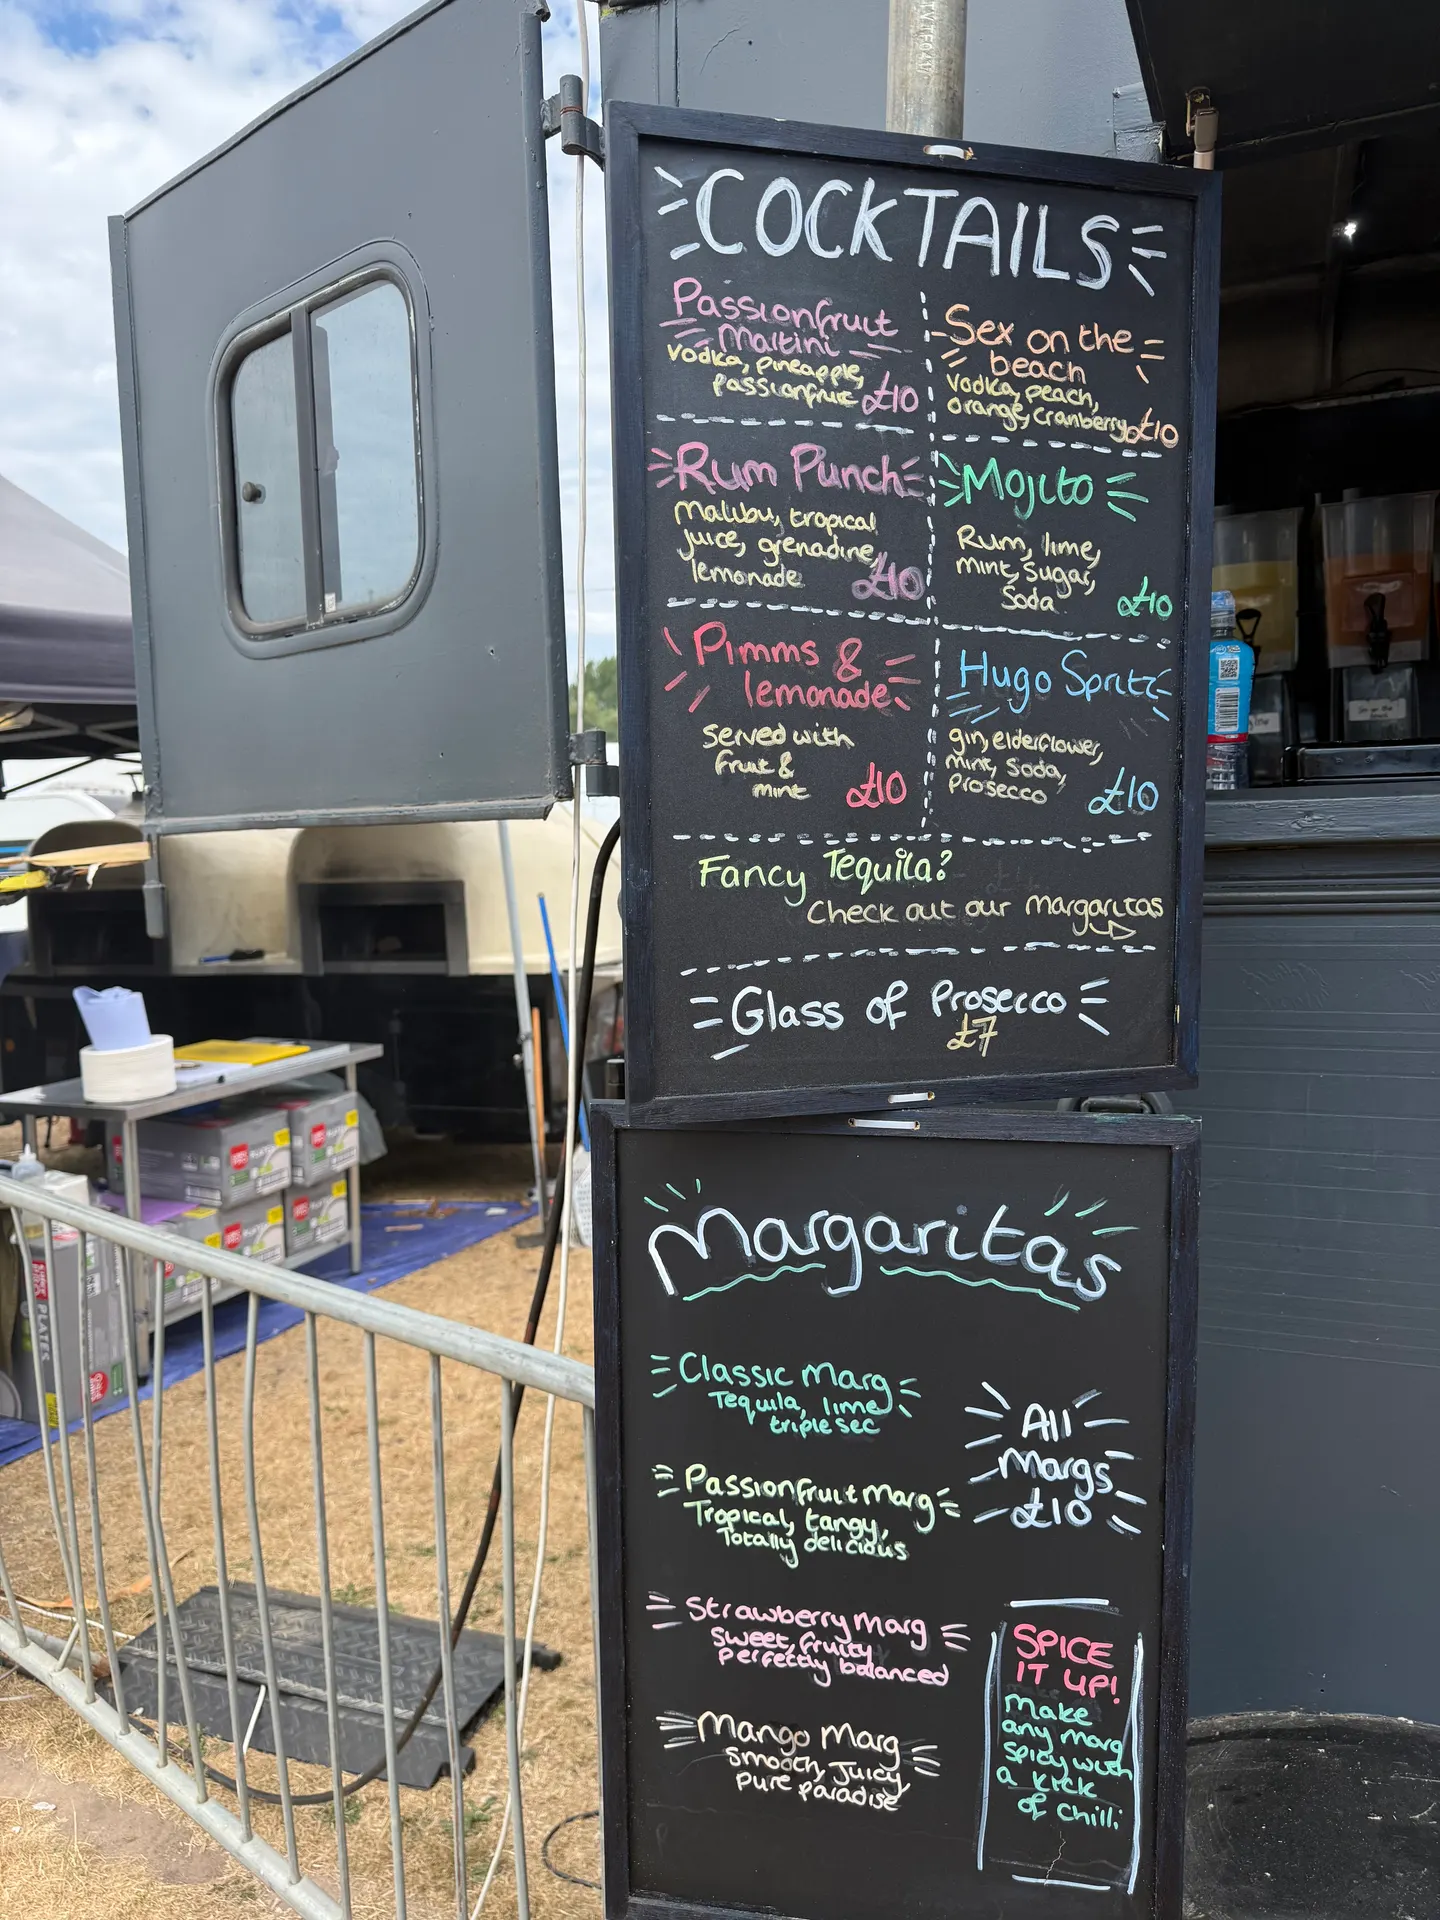 COCKTAILS
Passionfruit
Martini
Vodka, pineapple,
passionfruit £10
Sex on the
beach
Vodka, peach,
orange, cranberry £10
Rum Punch
Malibu, tropical
juice, grenadine,
lemonade £10
Mojito
Rum, lime,
mint, sugar,
Soda £10
Pimms &
lemonade
served with
fruit &
mint £10
Hugo Spritz
gin, elderflower,
mint, soda,
prosecco £10
Fancy Tequila?
Check out our margaritas
Glass of Prosecco
£7
Margaritas
Classic Marg
Tequila, lime
triple sec
Passionfruit Marg
Tropical, tangy,
Totally delicious
Strawberry Marg
sweet, fruity
perfectly balanced
Mango Marg
smooth, juicy,
pure paradise
All
Margs
£10
SPICE
IT UP!
Make
any marg
spicy with
a kick
of chilli
PLATES